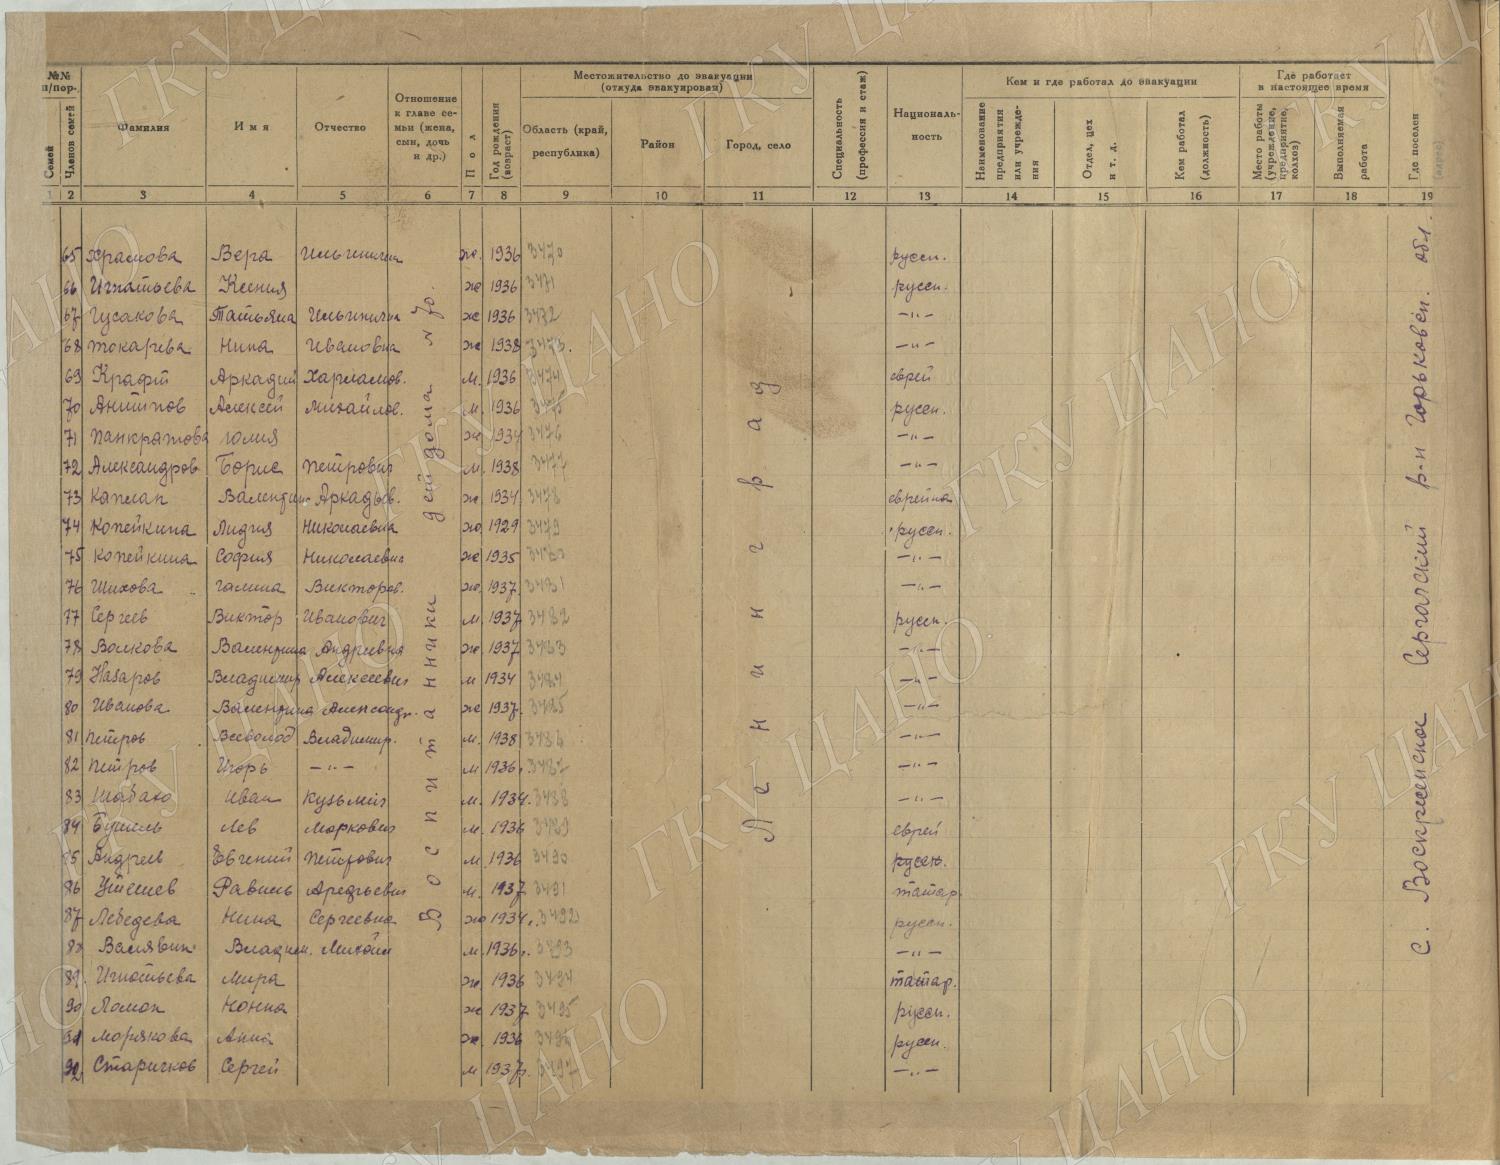 №№ п/пор.
Семей
Членов семей
Фамилия
Имя
Отчество
Отношение к главе семьи (жена, сын, дочь и др.)
Пол
Год рождения (возраст)
Местожительство до эвакуации (откуда эвакуирован)
Область (край, республика)
Район
Город, село
Специальность (профессия и стаж)
Националь-
ность
Кем и где работал до эвакуации
Наименование предприятия или учрежде-
ния
Отдел, цех и т. д.
Кем работал (должность)
Где работает в настоящее время
Место работы (учреждение, предприятие, колхоз)
Выполняемая работа
Где поселен (адрес)
1 2 3 4 5 6 7 8 9 10 11 12 13 14 15 16 17 18 19
65 Храмова Вера Ильинична ж. 1936 3470 русск.
66 Игнатьева Ксения ж 1936 3471 русск.
67 Гусакова Татьяна Ильинична ж 1936 3472 —"—
68 Токарева Нина Ивановна ж 1938 3473. —"—
69 Крафт Аркадий Харламов. м. 1936 3474 еврей
70 Антипов Алексей Михайлов. м. 1936 3475 русск.
71 Панкратова Юлия ж 1934 3476 —"—
72 Александров Борис Петрович м. 1938 3477 —"—
73 Каплан Валентин. Аркадьев. ж 1934 3478 еврейка
74 Копейкина Лидия Николаевна ж. 1929 3479 русск.
75 Копейкина София Николаевна ж 1935 3480 —"—
76 Шихова Галина Викторов. ж. 1937 3481 —"—
77 Сергеев Виктор Иванович м. 1937 3482 русск.
78 Волкова Валентина Андреевна ж 1937 3483 —"—
79 Назаров Владимир Алексеевич м 1934 3484 —"—
80 Иванова Валентина Александр. ж 1937 3485 —"—
81 Петров Всеволод Владимир. м. 1938 3486 —"—
82 Петров Игорь —"— м 1936. 3487 —"—
83 Иван Кузьмич м. 1934. 3488 —"—
84 Лев Маркович м. 1936 3489 еврей
85 Андреев Евгений Петрович м. 1936 3490 русск.
86 Равиль м. 1937 3491 татар.
87 Лебедева Нина Сергеевна ж 1934. 3492 русск.
88 Валявин Владим. Михайл м. 1936. 3493 —"—
89. Игнатьева Мира ж. 1936 3494 татар.
90 Ломок Нонна ж 1937 3495 русск.
91 Морякова Анна ж. 1936 3496 русск.
92 Старичков Сергей м 1937. 3497 —"—
Воспитанники дейдома № 70.
Ленинград
с. Воскресенское Сергачский р-н Горьковск. обл.